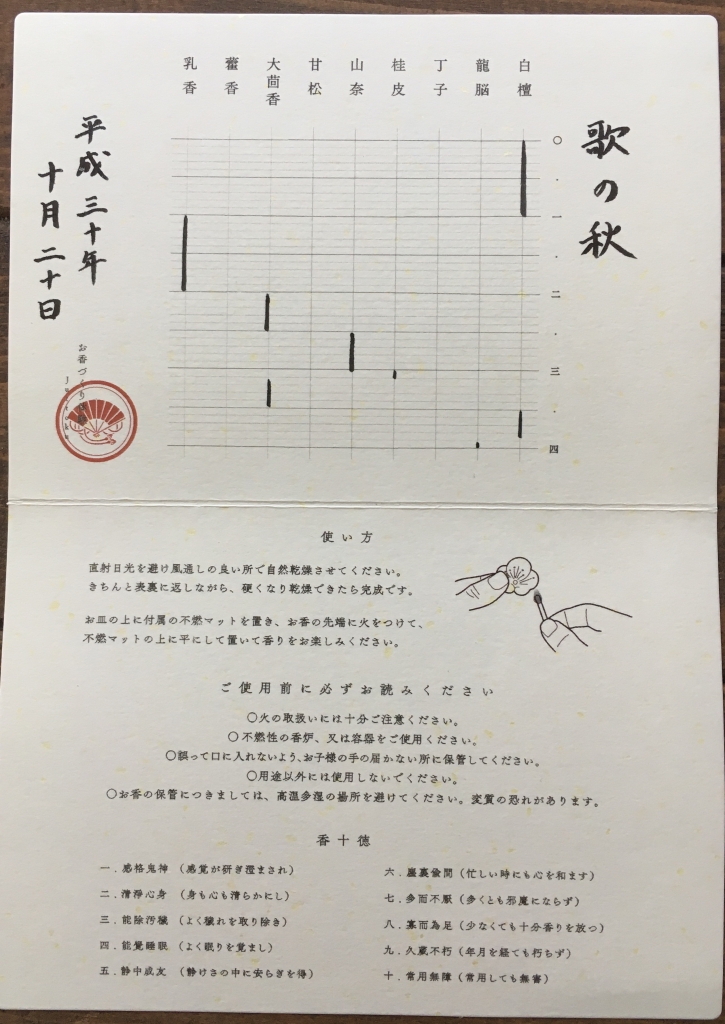 歌の秋
白檀
龍脳
丁子
桂皮
山奈
甘松
大茴香
藿香
乳香
〇
・
一
・
二
・
三
・
四
平成三十年
十月二十日
お香づくり
使い方
直射日光を避け風通しの良い所で自然乾燥させてください。
きちんと表裏に返しながら、硬くなり乾燥できたら完成です。
お皿の上に付属の不燃マットを置き、お香の先端に火をつけて、
不燃マットの上に平にして置いて香りをお楽しみください。
ご使用前に必ずお読みください
〇火の取扱いには十分ご注意ください。
〇不燃性の香炉、又は容器をご使用ください。
〇誤って口に入れないよう、お子様の手の届かない所に保管してください。
〇用途以外には使用しないでください。
〇お香の保管につきましては、高温多湿の場所を避けてください。変質の恐れがあります。
香十徳
一．感格鬼神（感覚が研ぎ澄まされ）
二．清浄心身（身も心も清らかにし）
三．能除汚穢（よく穢れを取り除き）
四．能覺睡眠（よく眠りを覚まし）
五．静中成友（静けさの中に安らぎを得）
六．塵裏偸閒（忙しい時にも心を和ます）
七．多而不厭（多くとも邪魔にならず）
八．寡而為足（少なくても十分香りを放つ）
九．久蔵不朽（年月を経ても朽ちず）
十．常用無障（常用しても無害）